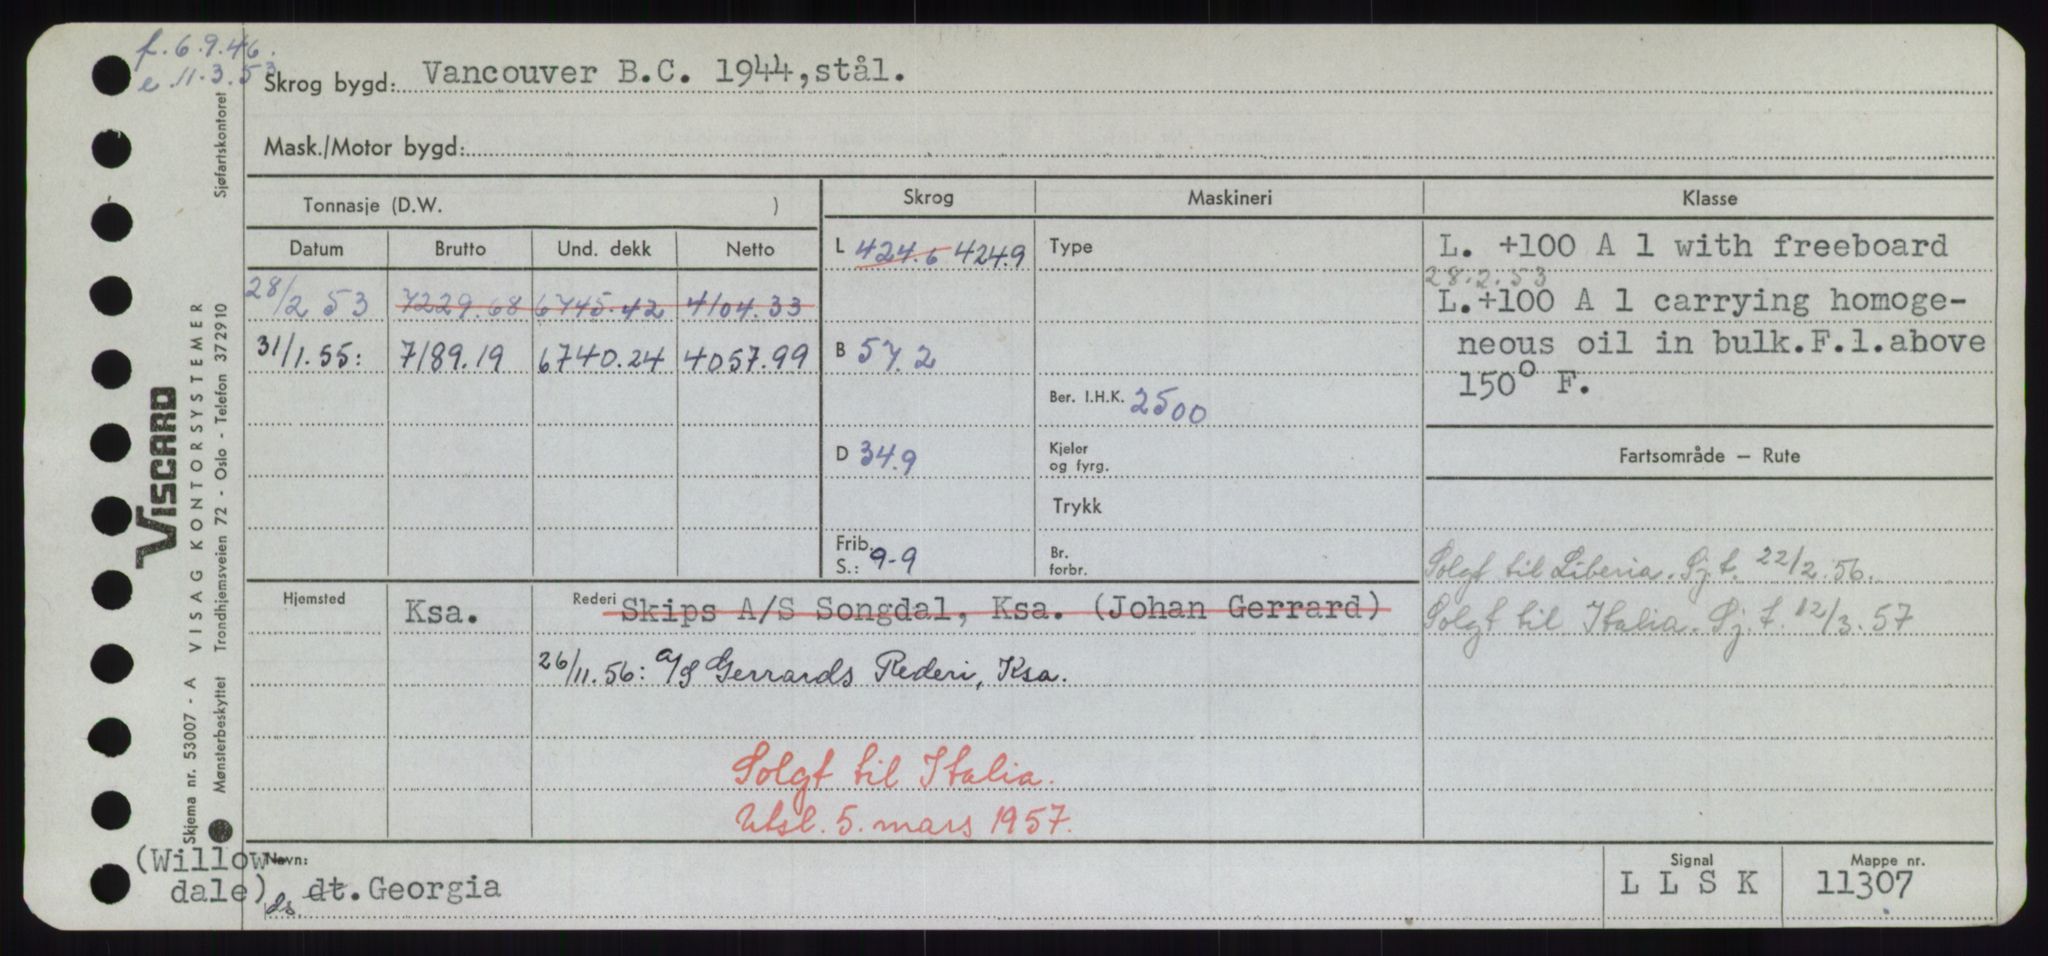 f. 6.9.46.
e. 11.3.53
Skrog bygd: Vancouver B.C. 1944, stål.
Mask./Motor bygd:
Tonnasje (D.W. )
Skrog
Maskineri
Klasse
Datum Brutto Und. dekk Netto
28/2 53 7229.68 6745.42 4104.33
31/1.55: 7189.19 6740.24 4057.99
L 424.6 424.9
B 57.2
D 34.9
Frib.
S.: 9-9
Type
Ber. I.H.K. 2500
Kjeler
og fyrg.
Trykk
Br.
forbr.
L. +100 A 1 with freeboard
28.2.53
L.+100 A 1 carrying homoge-
neous oil in bulk.F.l.above
150° F.
Fartsområde – Rute
Solgt til Liberia. Sj.t. 22/2.56.
Solgt til Italia. Sj.t. 12/3.57
Hjemsted Ksa. Rederi Skips A/S Songdal, Ksa. (Johan Gerrard)
26/11.56: A/S Gerrards Rederi, Ksa.
Solgt til Italia.
Utsl. 5. mars 1957.
(Willow-
dale)
Navn:
ds dt. Georgia
Signal
L L S K
Mappe nr.
11307
Skjema nr. 53007 - A VISAG KONTORSYSTEMER
VISCARD
Mønsterbeskyttet Trondhjemsveien 72 - Oslo - Telefon 372910 Sjøfartskontoret